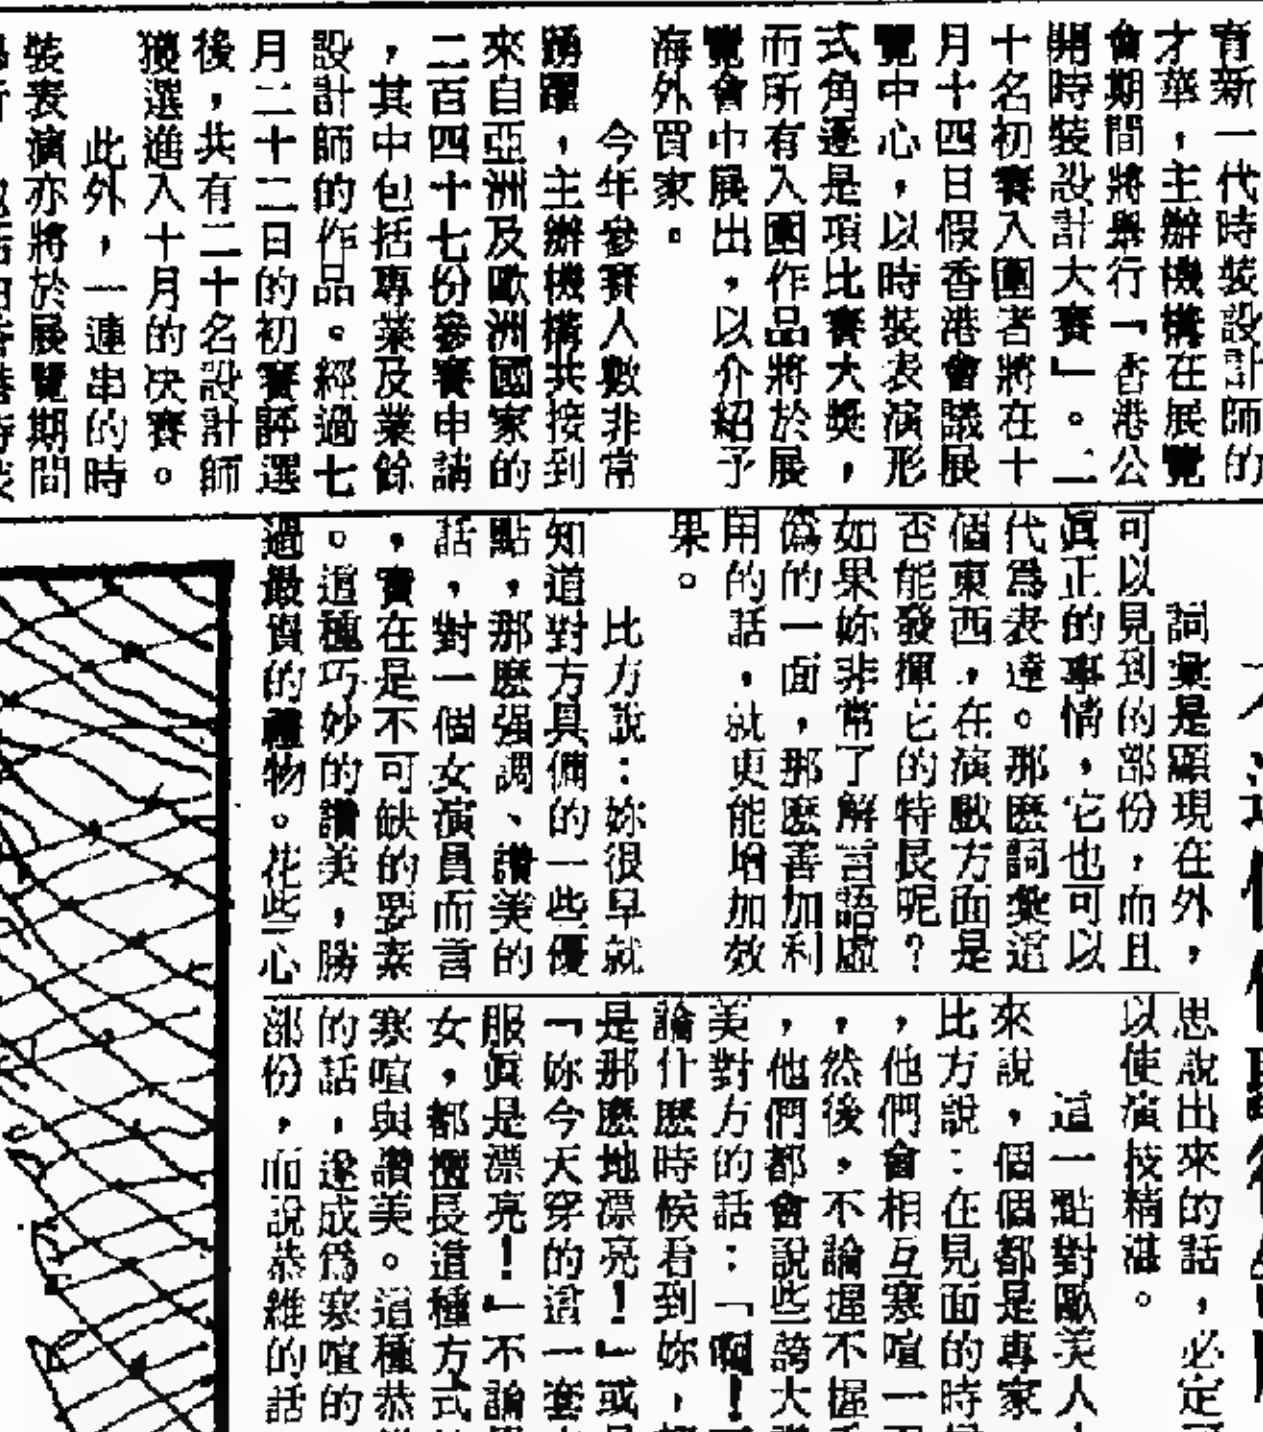 育新一代時裝設計師的
才華，主辦機構在展覽
會期間將舉行「香港公
開時裝設計大賽」。二
十名初賽入圍者將在十
月十四日假香港會議展
覽中心，以時裝表演形
式角逐是項比賽大獎，
而所有入圍作品將於展
覽會中展出，以介紹予
海外買家。
今年參賽人數非常
踴躍，主辦機構共接到
來自亞洲及歐洲國家的
二百四十七份參賽申請
，其中包括專業及業餘
設計師的作品。經過七
月二十二日的初賽評選
後，共有二十名設計師
獲選進入十月的決賽。
此外，一連串的時
裝表演亦將於展覽期間
詞彙是顯現在外，
可以見到的部份，而且
眞正的事情，它也可以
代爲表達。那麽詞彙這
個東西，在演戲方面是
否能發揮它的特長呢？
如果妳非常了解言語虛
僞的一面，那麽善加利
用的話，就更能增加效
果。
比方說：妳很早就
知道對方具備的一些優
點，那麽强調、讚美的
話，對一個女演員而言
，實在是不可缺的要素
。這種巧妙的讚美，勝
過最貴的禮物。花些心
思說出來的話，必定
以使演技精湛。
這一點對歐美人
來說，個個都是專家
比方說：在見面的時
，他們會相互寒喧一
，然後，不論握不握
，他們都會說些誇大
美對方的話：「啊！
論什麽時候看到妳，
是那麽地漂亮！」或
「妳今天穿的這一套
服眞是漂亮！」不論
女，都擅長這種方式
寒喧與讚美。這種恭
的話，遂成爲寒喧的
部份，而說恭維的話